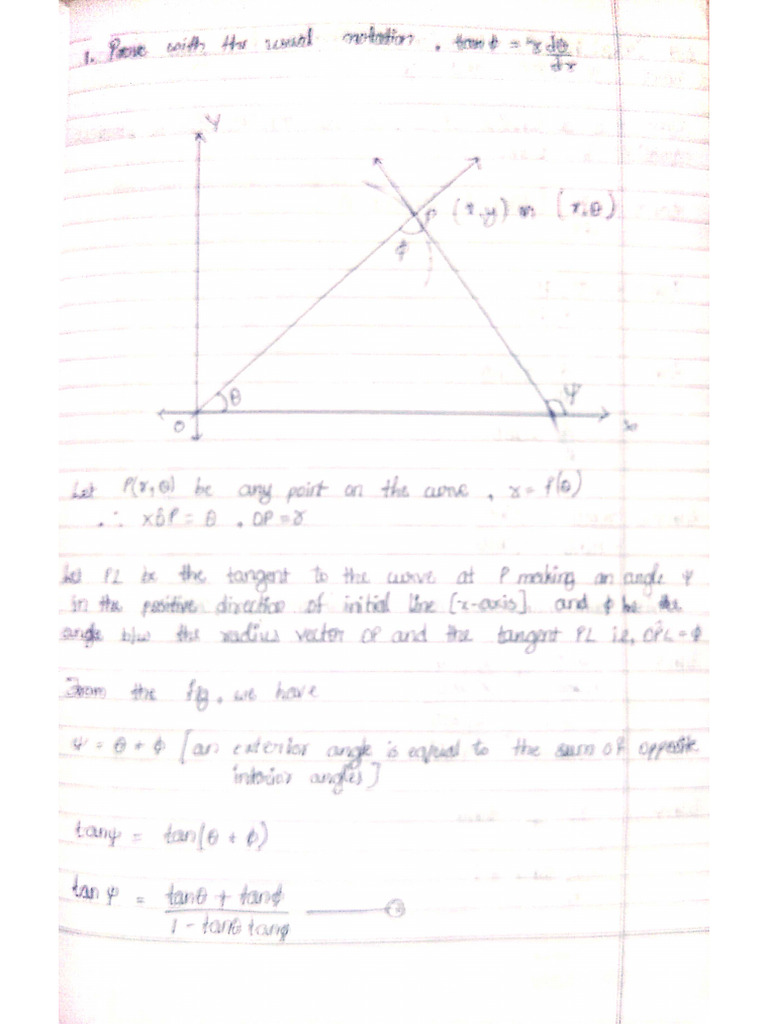 1. Prove with the usual notation, tanϕ = r dθ/dr
Y
P (x,y) or (r,θ)
ϕ
θ
ψ
O
x
Let P(r,θ) be any point on the curve, r = f(θ)
∴ xÔP = θ, OP = r
Let PL be the tangent to the curve at P making an angle ψ
in the positive direction of initial line [x-axis] and ϕ be the
angle b/w the radius vector OP and the tangent PL i.e, OP̂L = ϕ
From the fig, we have
ψ = θ + ϕ [an exterior angle is equal to the sum of opposite
interior angles]
tanψ = tan(θ + ϕ)
tanψ = tanθ + tanϕ
1 - tanθ tanϕ